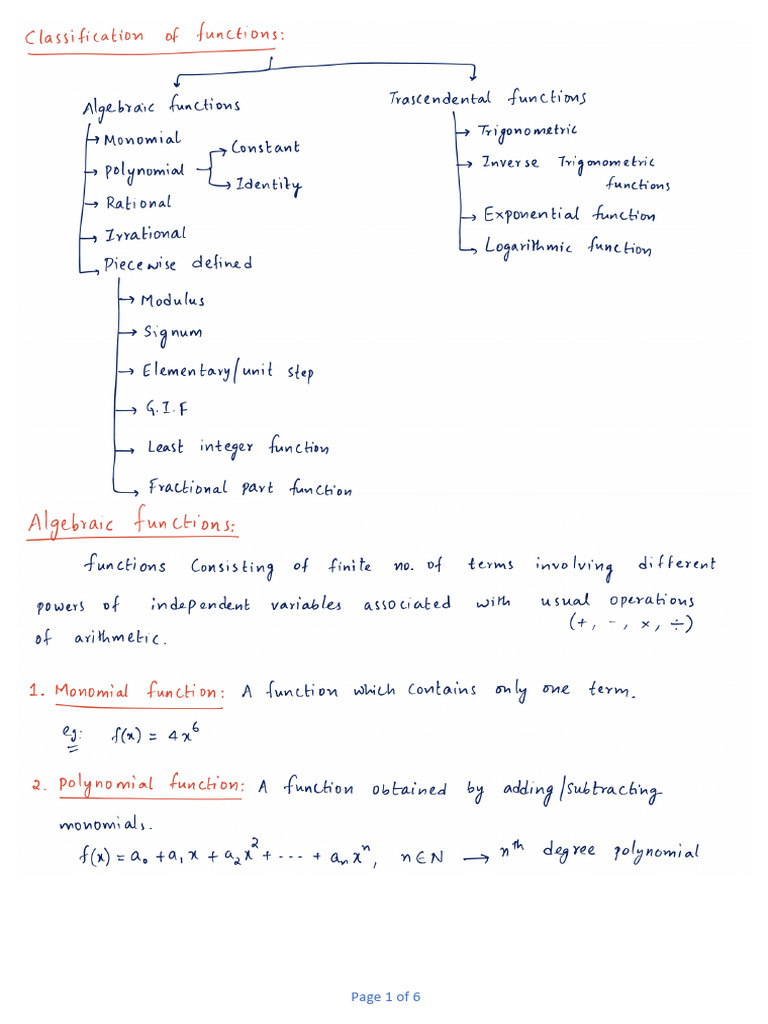 Classification of functions:
Algebraic functions
Trascendental functions
Monomial
Polynomial
Constant
Identity
Rational
Irrational
Piecewise defined
Trigonometric
Inverse Trigonometric
functions
Exponential function
Logarithmic function
Modulus
Signum
Elementary/unit step
G.I.F
Least integer function
Fractional part function
Algebraic functions:
functions consisting of finite no. of terms involving different
powers of independent variables associated with usual operations
(+, -, ×, ÷)
of arithmetic.
1. Monomial function: A function which contains only one term.
eg: f(x) = 4x⁶
2. Polynomial function: A function obtained by adding/subtracting
monomials.
f(x) = a₀ + a₁x + a₂x² + --- + aₙxⁿ, n∈N → nᵗʰ degree polynomial
Page 1 of 6